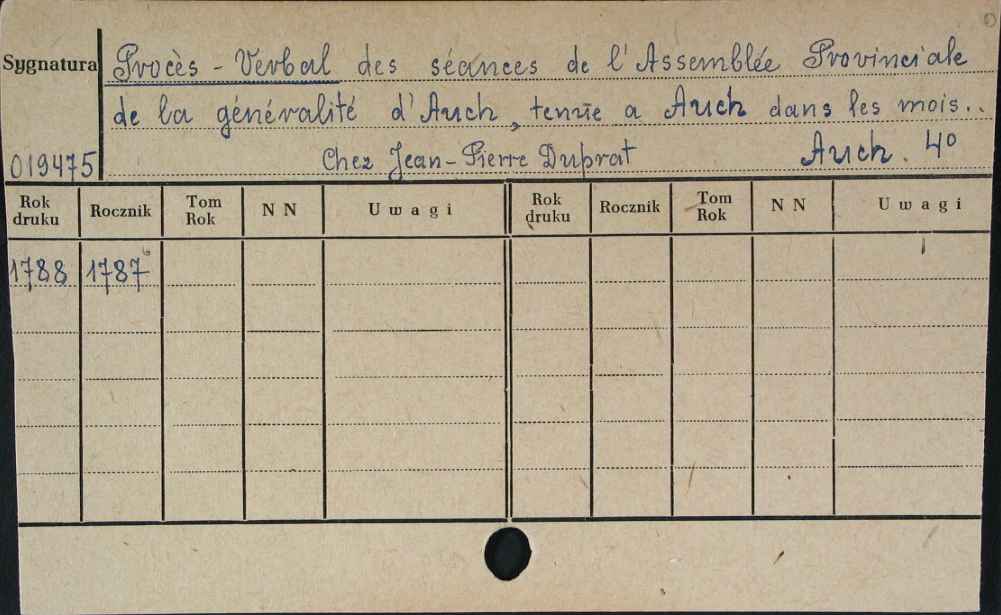 Sygnatura
Procès - Verbal des séances de l'Assemblée Provinciale
de la généralité d'Auch, tenue a Auch dans les mois..
019475
Chez Jean-Pierre Duprat Auch. 4º
Rok druku Rocznik Tom Rok N N Uwagi Rok druku Rocznik Tom Rok N N Uwagi
1788 1787